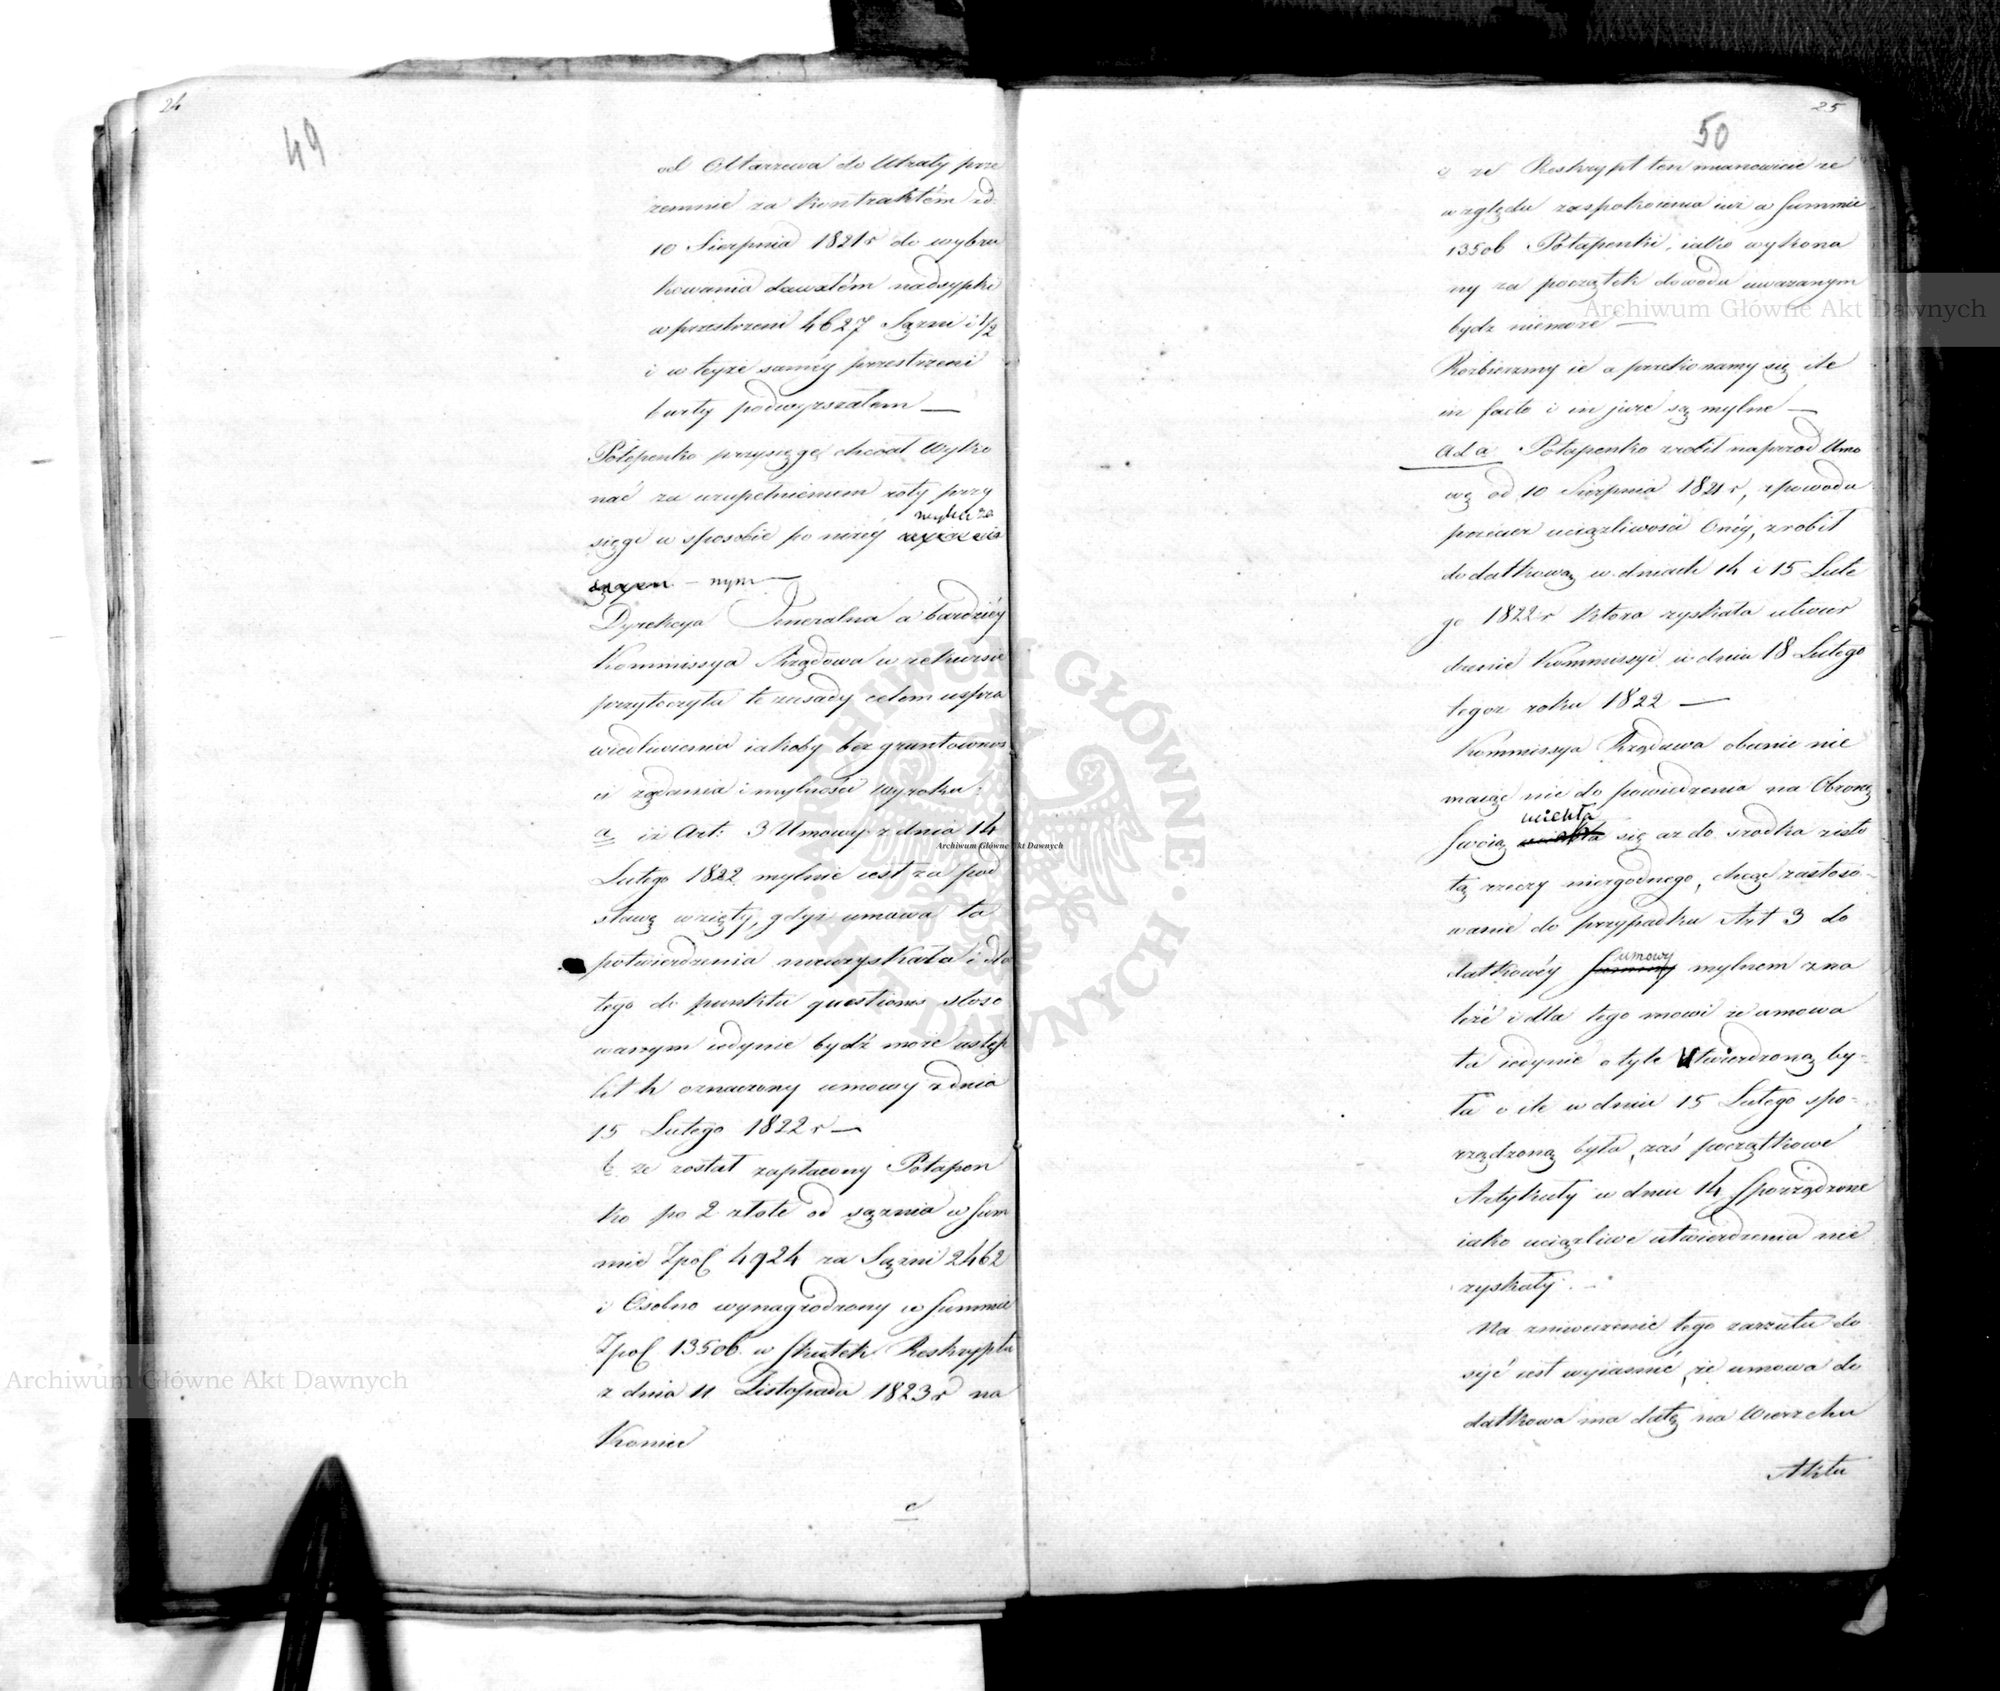 24
49
od Ołtarzewa do Utraty prze
zemnie za kontraktem zd:
10 Sierpnia 1821 r do wybra
kowania dawałem nadsypki
w przestrzeni 4627 Sążni i 1/2
i w teyże saméy przestrzeni
burty podwyższałem —
Potapenko przysięgę chciał wyko
nać za uzupełnieniem roty przy
sięgi w sposobie po niżéy wyłuża
— nym —
Dyrekcya Jeneralna a bardziéy
Kommissya Rządowa w rekursie
przytoczyła te zasady celem uspra
wiedliwienia iakoby bez gruntownoś
ci żądania i mylności wyroku:
a iż Art: 3 Umowy z dnia 14
Lutego 1822 mylnie iest za pod
stawę wzięty, gdyż umowa ta
potwierdzenia nieuzyskała i dla
tego do punktu questionis stoso
wanym iedynie bydź może ustęp
lit h oznaczony umowy z dnia
15 Lutego 1822 r —
b że został zapłacony Potapen
ko po 2 złote od sążnia w Sum
mie Zpol 4924 za Sążni 2462
i Osobno wynagrodzony w Summie
Zpol 13506 w Skutek Reskryptu
z dnia 11 Listopada 1823 r na
Koniec
c
25
50
c że Reskrypt ten mianowicie ze
względu zaspokoienia iuż w Summie
13506 Potapenki, iako wykona
ny za początek dowodu uważanym
bydz niemoże —
Rozbierzmy ie a przekonamy się ile
in facto i in jure są mylne —
Ad a Potapenko zrobił naprzod Umo
wę od 10 Sierpnia 1821 r, z powodu
przecież uciążliwości Onéy, zrobił
dodatkową w dniach 14 i 15 Lute
go 1822 r która zyskała utwier
dzenie Kommissyi w dniu 18 Lutego
tegoż roku 1822 —
Kommissya Rządowa obecnie nie
maiąc nic do powiedzenia na Obronę
Swoią uciekła się aż do środka z isto
tą rzeczy niezgodnego, chcąc zastoso-
wanie do przypadku Art 3 do
datkowéy umowy mylnem zna
leźć i dla tego mowi że umowa
ta iedynie o tyle Utwierdzoną by-
ła o ile w dniu 15 Lutego spo-
rządzoną była, zaś początkowe
Artykuły w dniu 14 Sporządzone
iako uciążliwe utwierdzenia nie
zyskały. —
Na zniweczenie tego zarzutu do
syć iest wyiaśnić, że umowa do
datkowa ma datę na Wierzchu
Aktu
Archiwum Główne Akt Dawnych
Archiwum Główne Akt Dawnych
Archiwum Główne Akt Dawnych
ARCHIWUM GŁÓWNE · AKT DAWNYCH ·